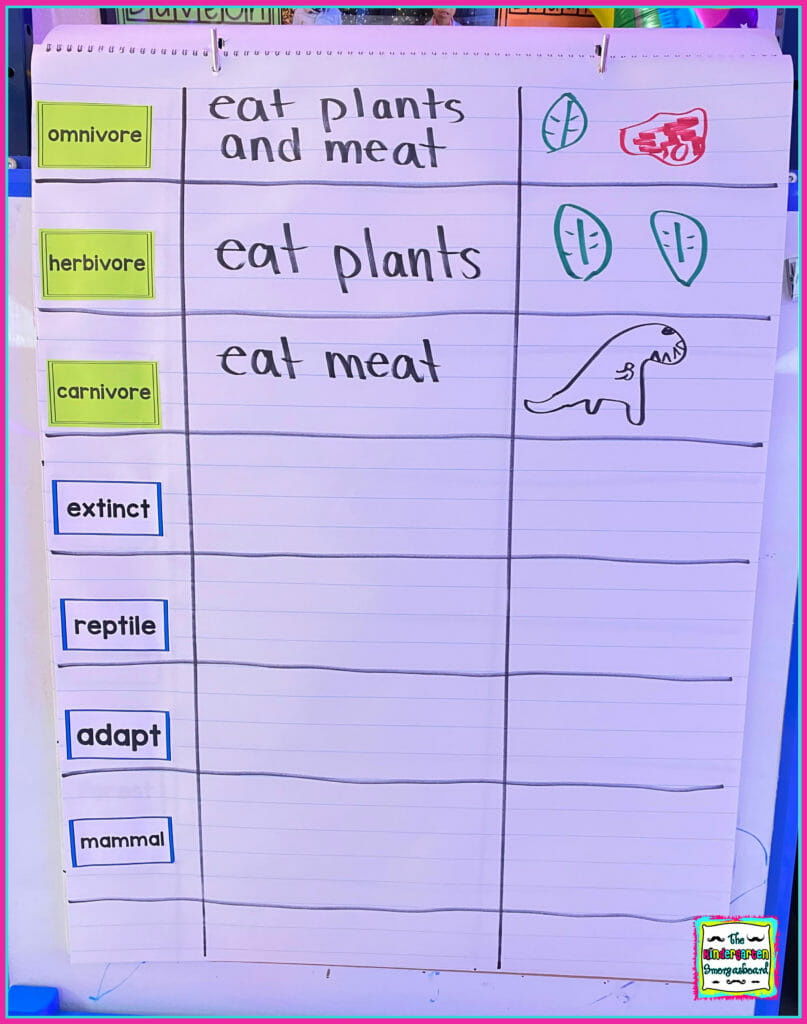 omnivore
eat plants
and meat
herbivore
eat plants
carnivore
eat meat
extinct
reptile
adapt
mammal
The
Kindergarten
Smorgasboard